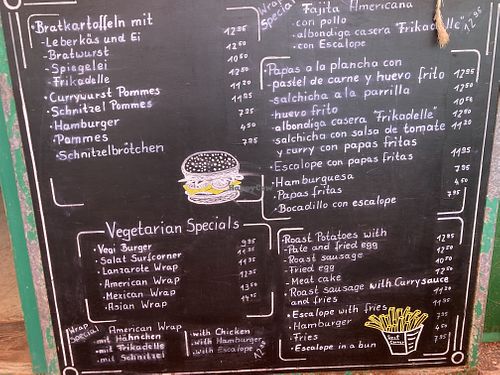 Bratkartoffeln mit
-Leberkäs und Ei 12.95
-Bratwurst 12.50
-Spiegelei 10.50
-Frikadelle 12.50
·Currywurst Pommes 11.20
·Schnitzel Pommes 11.95
·Hamburger 7.95
·Pommes 4.50
·Schnitzelbrötchen 7.95
Wrap Special
Fajita Americana
·con pollo
·albondiga casera "Frikadelle" 12.95
·con Escalope
·Papas a la plancha con
-pastel de carne y huevo frito 12.95
-salchicha a la parrilla 12.50
-huevo frito 10.50
-albondiga casera "Frikadelle" 12.50
·salchicha con salsa de tomate 11.20
y curry con papas fritas
·Escalope con papas fritas 11.95
·Hamburguesa 7.95
·Papas fritas 4.50
·Bocadillo con escalope 7.95
Vegetarian Specials
·Vegi Burger 9.95
·Salat Surfcorner
·Lanzarote Wrap 11.95
·American Wrap 12.95
·Mexican Wrap 13.50
·Asian Wrap
Wrap Special
American Wrap
·mit Hähnchen
·mit Frikadelle
·mit Schnitzel
·with Chicken
·with Hamburger
·with Escalope
·Roast Potatoes with
-Pate and fried egg 12.95
-Roast sausage 12.50
-Fried egg 10.50
-Meat cake 12.50
·Roast sausage with Curry sauce
and fries 11.20
·Escalope with fries 11.95
·Hamburger 7.95
·Fries 4.50
·Escalope in a bun 7.95